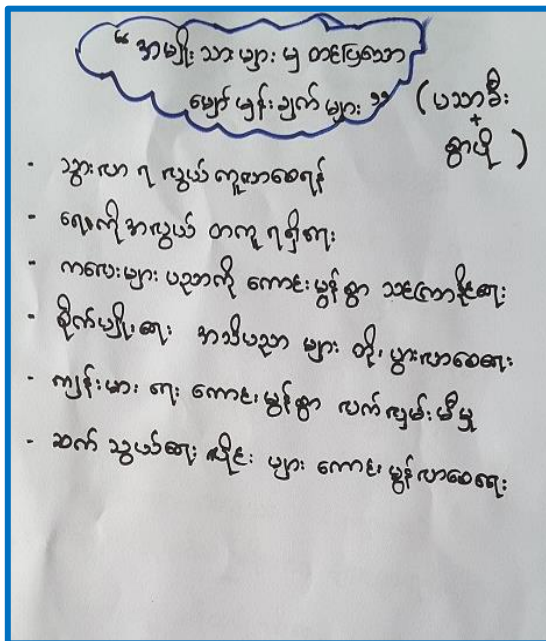 “ အမျိုးသားများ မှ တင်ပြသော
မျှော်မှန်းချက်များ ” ( ပသာခီး
+
စွာပို )
- သွားလာ ရ လွယ်ကူလာစေရန်
- ရေကို အလွယ် တကူ ရရှိရေး
- ကလေးများ ပညာကို ကောင်းမွန်စွာ သင်ကြားနိုင်ရေး
- စိုက်ပျိုးရေး အသိပညာ များ တိုးပွားလာစေရေး
- ကျန်းမာရေး ကောင်းမွန်စွာ လက်လှမ်းမီမှု
- ဆက်သွယ်ရေး လိုင်း များ ကောင်းမွန်လာစေရေး